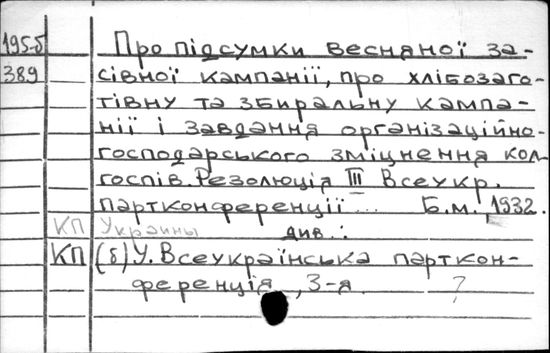 195-б Про підсумки весняної за-
389 сівної кампанії, про хлібозаго-
тівну та збиральну кампа-
нії і завдання організаційно-
господарського зміцнення кол-
госпів. Резолюція III Всеукр.
партконференції ... Б.м., 1932.
КП Украины див.:
КП (б)У. Всеукраїнська парткон-
ференція, 3-я. ?